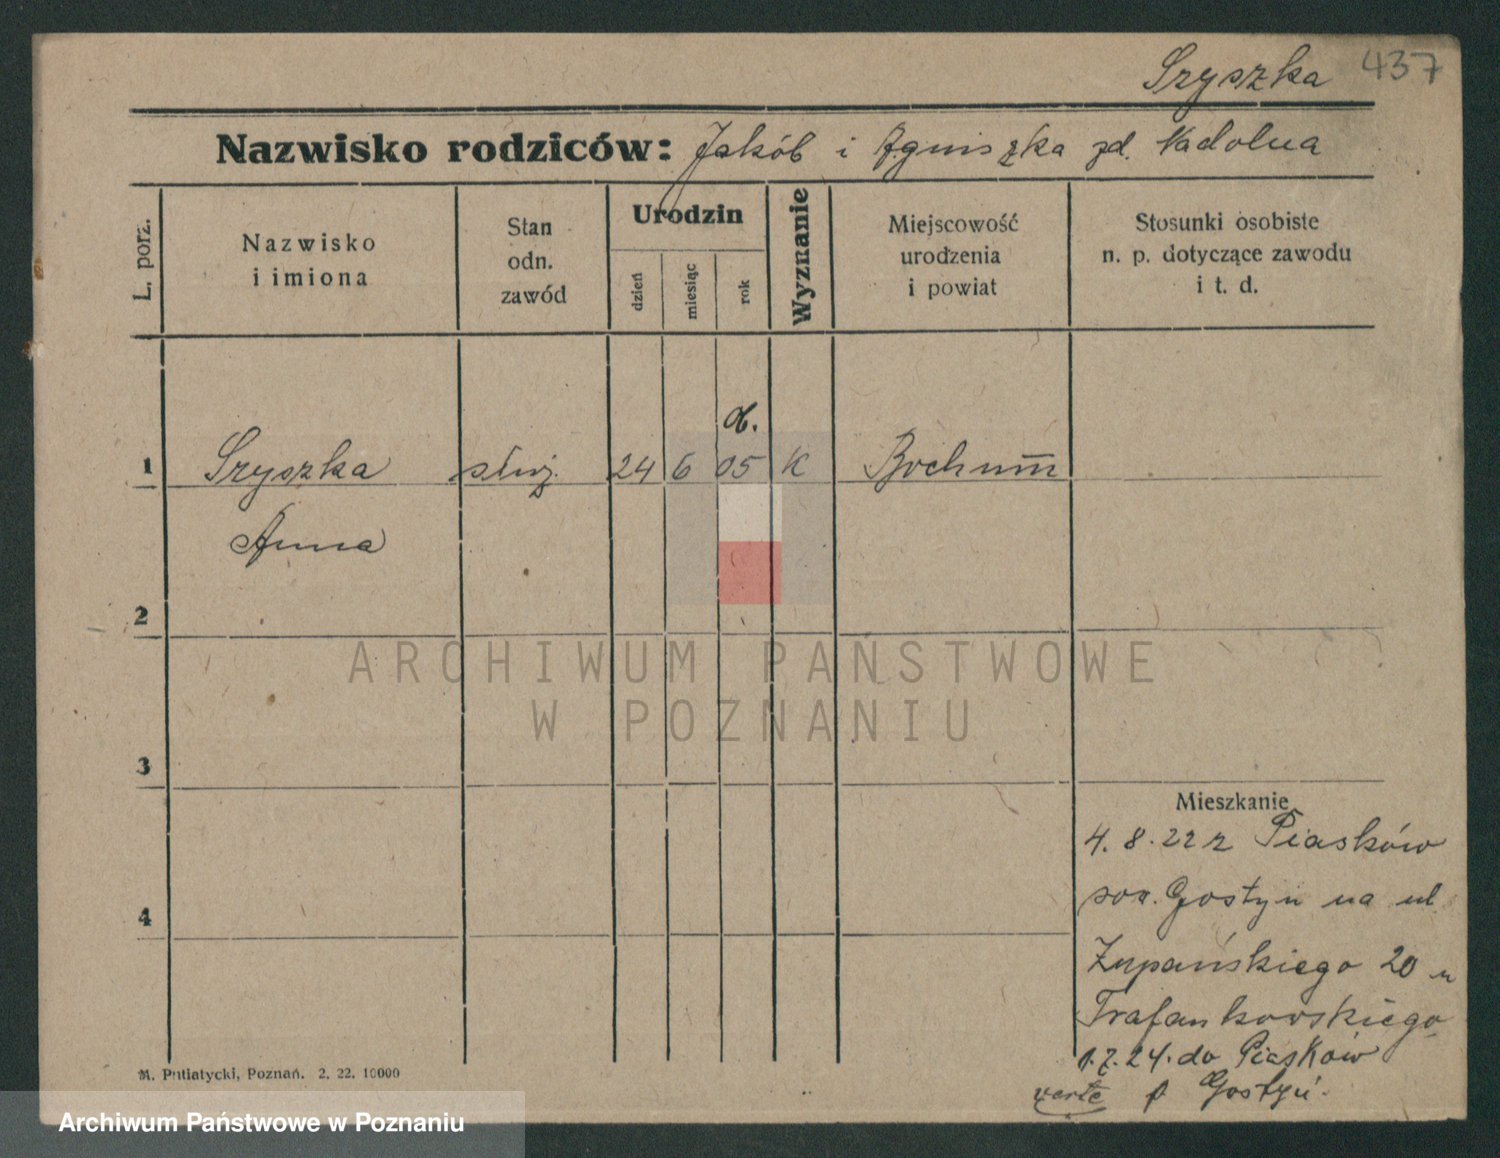 Szyszka 437
Nazwisko rodziców: Jakób i Agniszka zd. Nadolna
L. porz.
Nazwisko
i imiona
Stan
odn.
zawód
Urodzin
dzień
miesiąc
rok
Wyznanie
Miejscowość
urodzenia
i powiat
Stosunki osobiste
n. p. dotyczące zawodu
i t. d.
1 Szyszka służ. 24 6 05 K Bochum
Anna
2
3
4
Mieszkanie
4. 8. 22 z Piasków
pow. Gostyń na ul
Żupańskiego 20 u
Trafankowskiego
1.7.24. do Piasków
verte p Gostyń.
M. Putiatycki, Poznań. 2. 22. 10000
ARCHIWUM PAŃSTWOWE
W POZNANIU
Archiwum Państwowe w Poznaniu